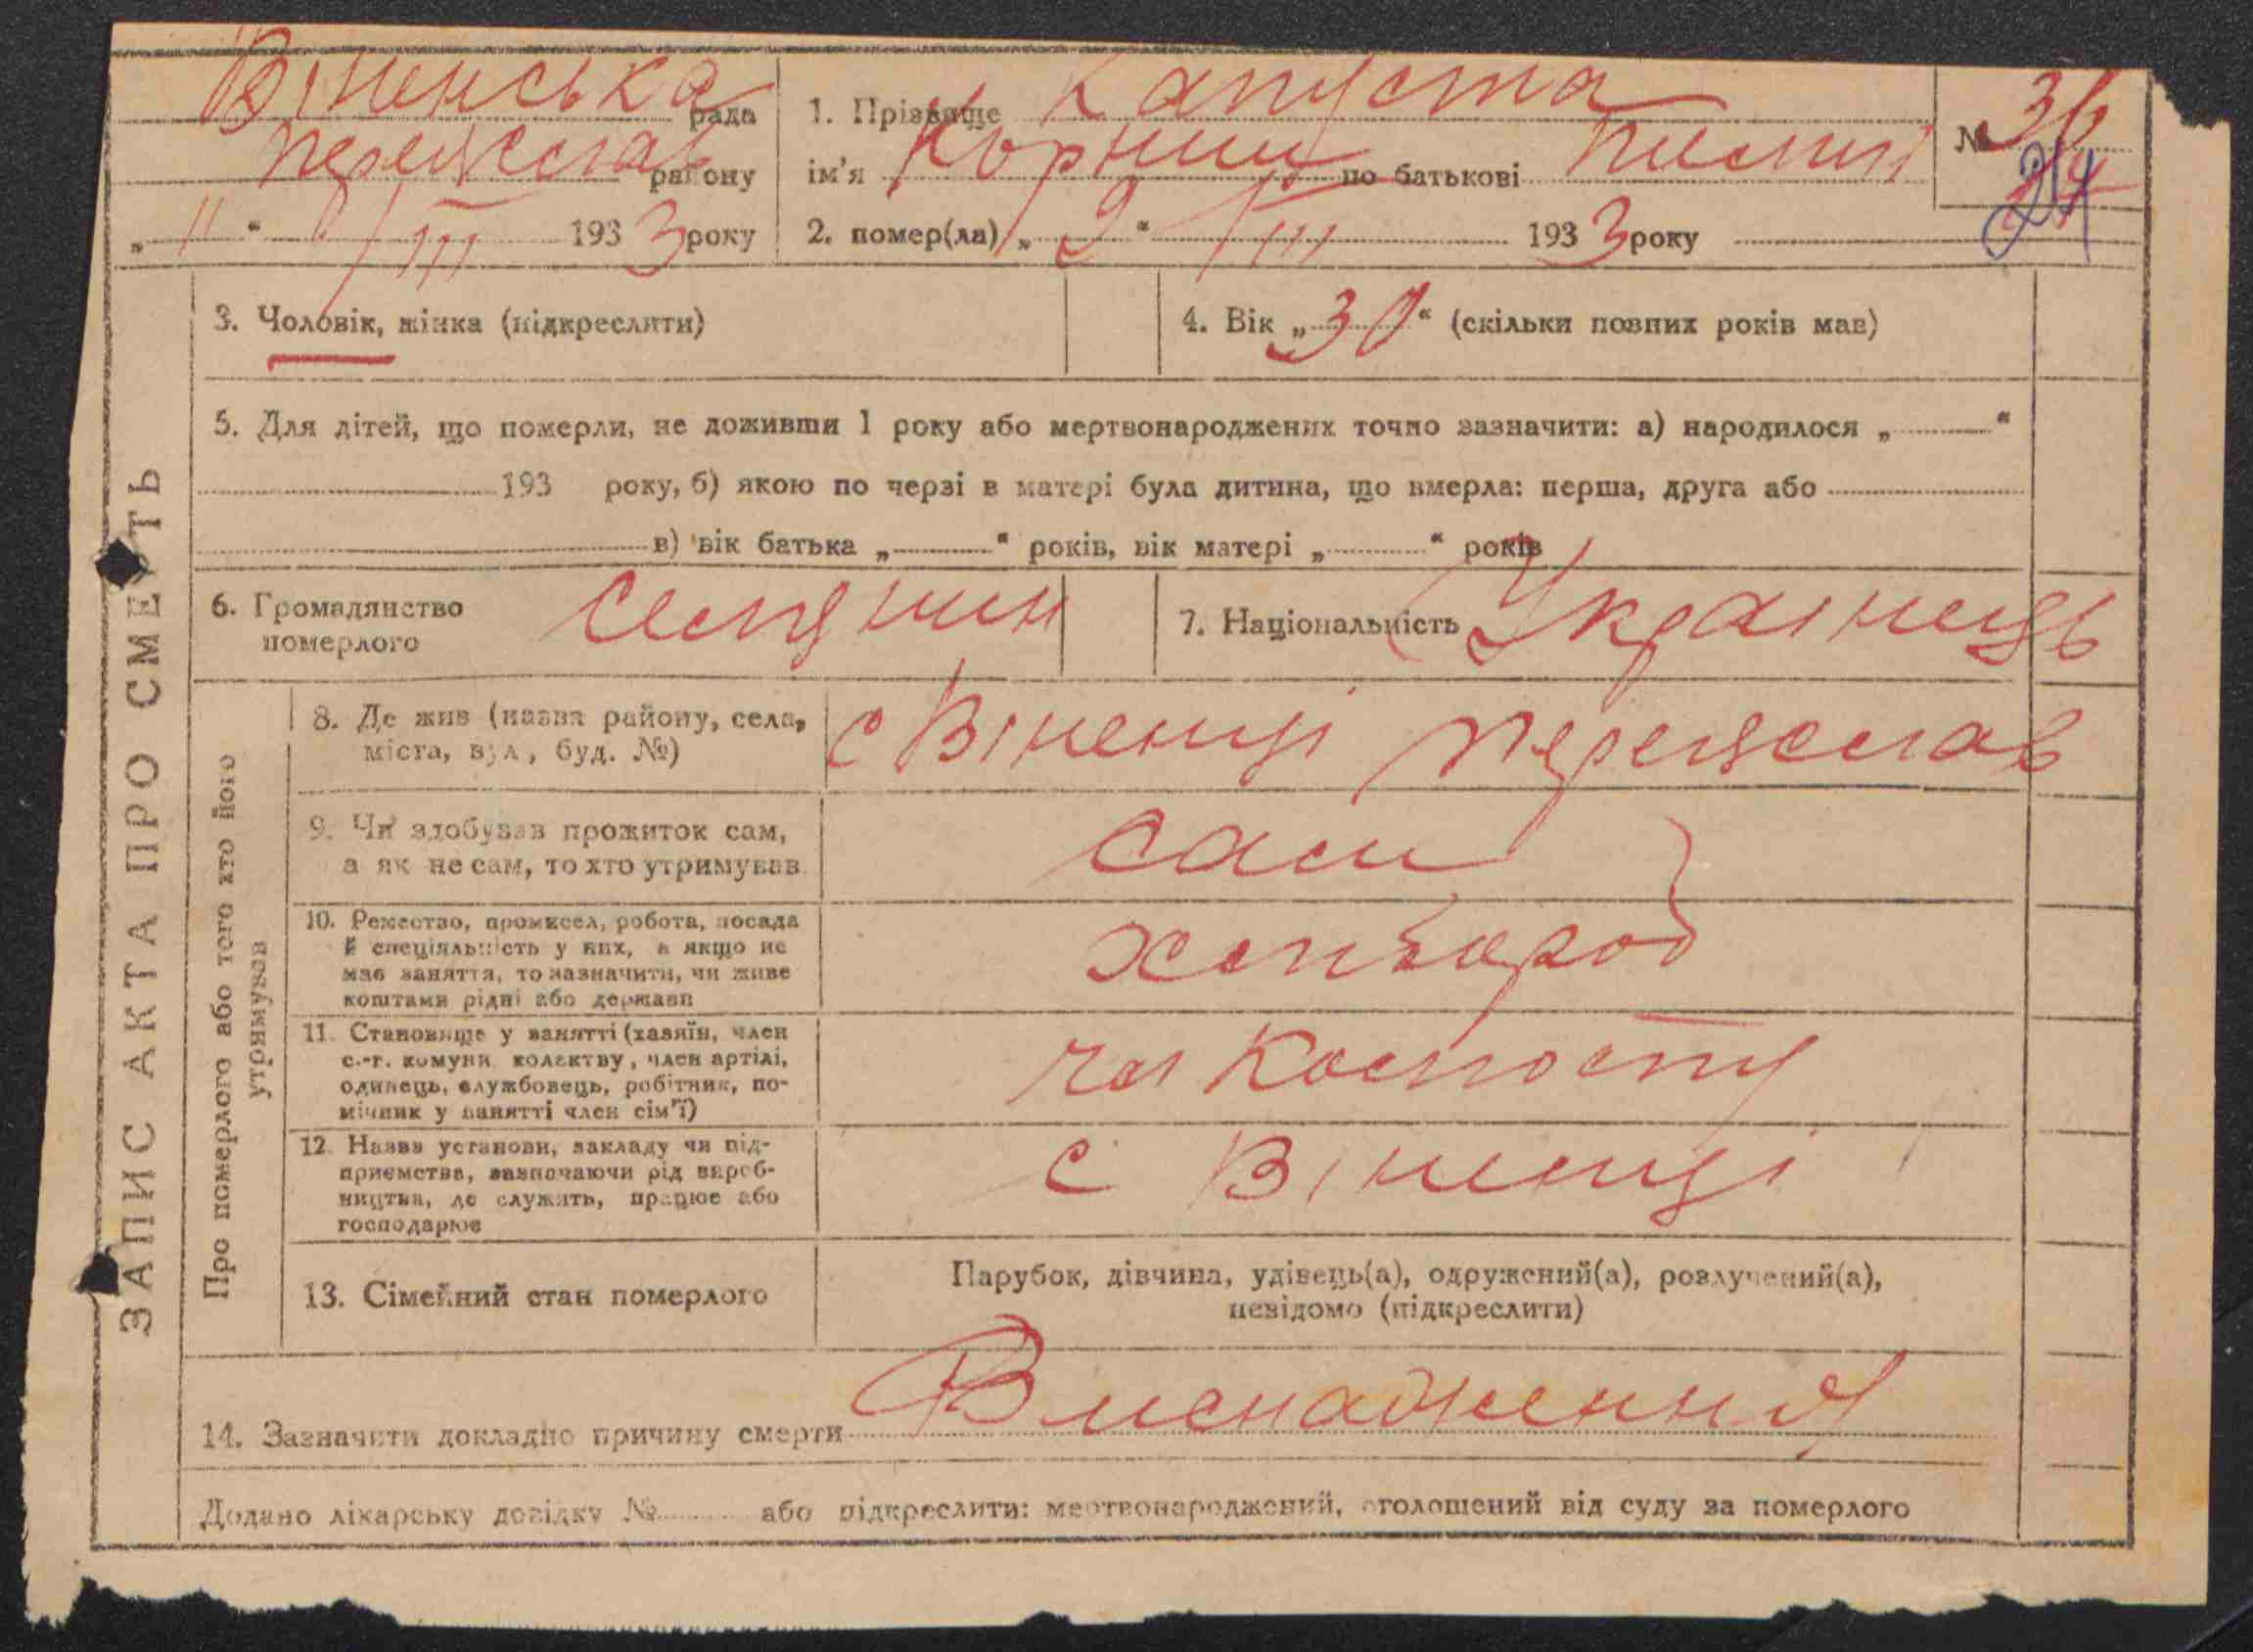 Віненська рада
Переяслав району
„ 11 “ III 1933 року
1. Прізвище Капуста
ім'я Корний по батькові
2. помер(ла) „ 9 “ III 1933 року
№ 36
24
3. Чоловік, жінка (підкреслити)
4. Вік „ 30 “ (скільки повних років мав)
5. Для дітей, що померли, не доживши 1 року або мертвонароджених точно зазначити: а) народилося „ “
193 року, б) якою по черзі в матері була дитина, що вмерла: перша, друга або
в) вік батька „ “ років, вік матері „ “ років
6. Громадянство
померлого
селянин
7. Національність Українець
ЗАПИС АКТА ПРО СМЕРТЬ
Про померлого або того хто його
утримував
8. Де жив (назва району, села,
міста, вул, буд. №)
с Віненці Переяслав
9. Чи здобував прожиток сам,
а як не сам, то хто утримував
сам
10. Ремество, промисел, робота, посада
й спеціяльність у них, а якщо не
мав заняття, то зазначити, чи живе
коштами рідні або держави
хлібороб
11. Становище у занятті (хазяїн, член
с.-г. комуни колектву, член артілі,
одинець, службовець, робітник, по-
мічник у занятті член сім'ї)
чл Колгоспу
12. Назва установи, закладу чи під-
приємства, зазначаючи рід вироб-
ництва, де служить, працює або
господарює
с Віненці
13. Сімейний стан померлого
Парубок, дівчина, удівець(а), одружений(а), розлучений(а),
невідомо (підкреслити)
14. Зазначити докладно причину смерти Виснаження
Додано лікарську довідку № або підкреслити: мертвонароджений, оголошений від суду за померлого